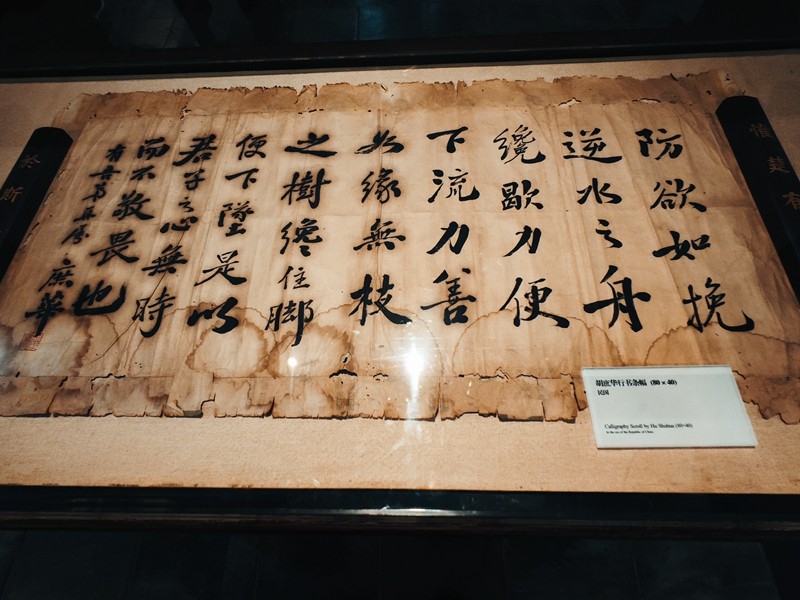 惟楚有
防欲如挽
逆水之舟
纔歇力便
下流力善
如緣無枝
之樹纔住脚
便下墜是以
君子之心無時
而不敬畏也
庶華
於斯
胡庶华行书条幅 (80×40)
民国
Calligraphy Scroll by Hu Shuhua (80×40)
In the era of the Republic of China